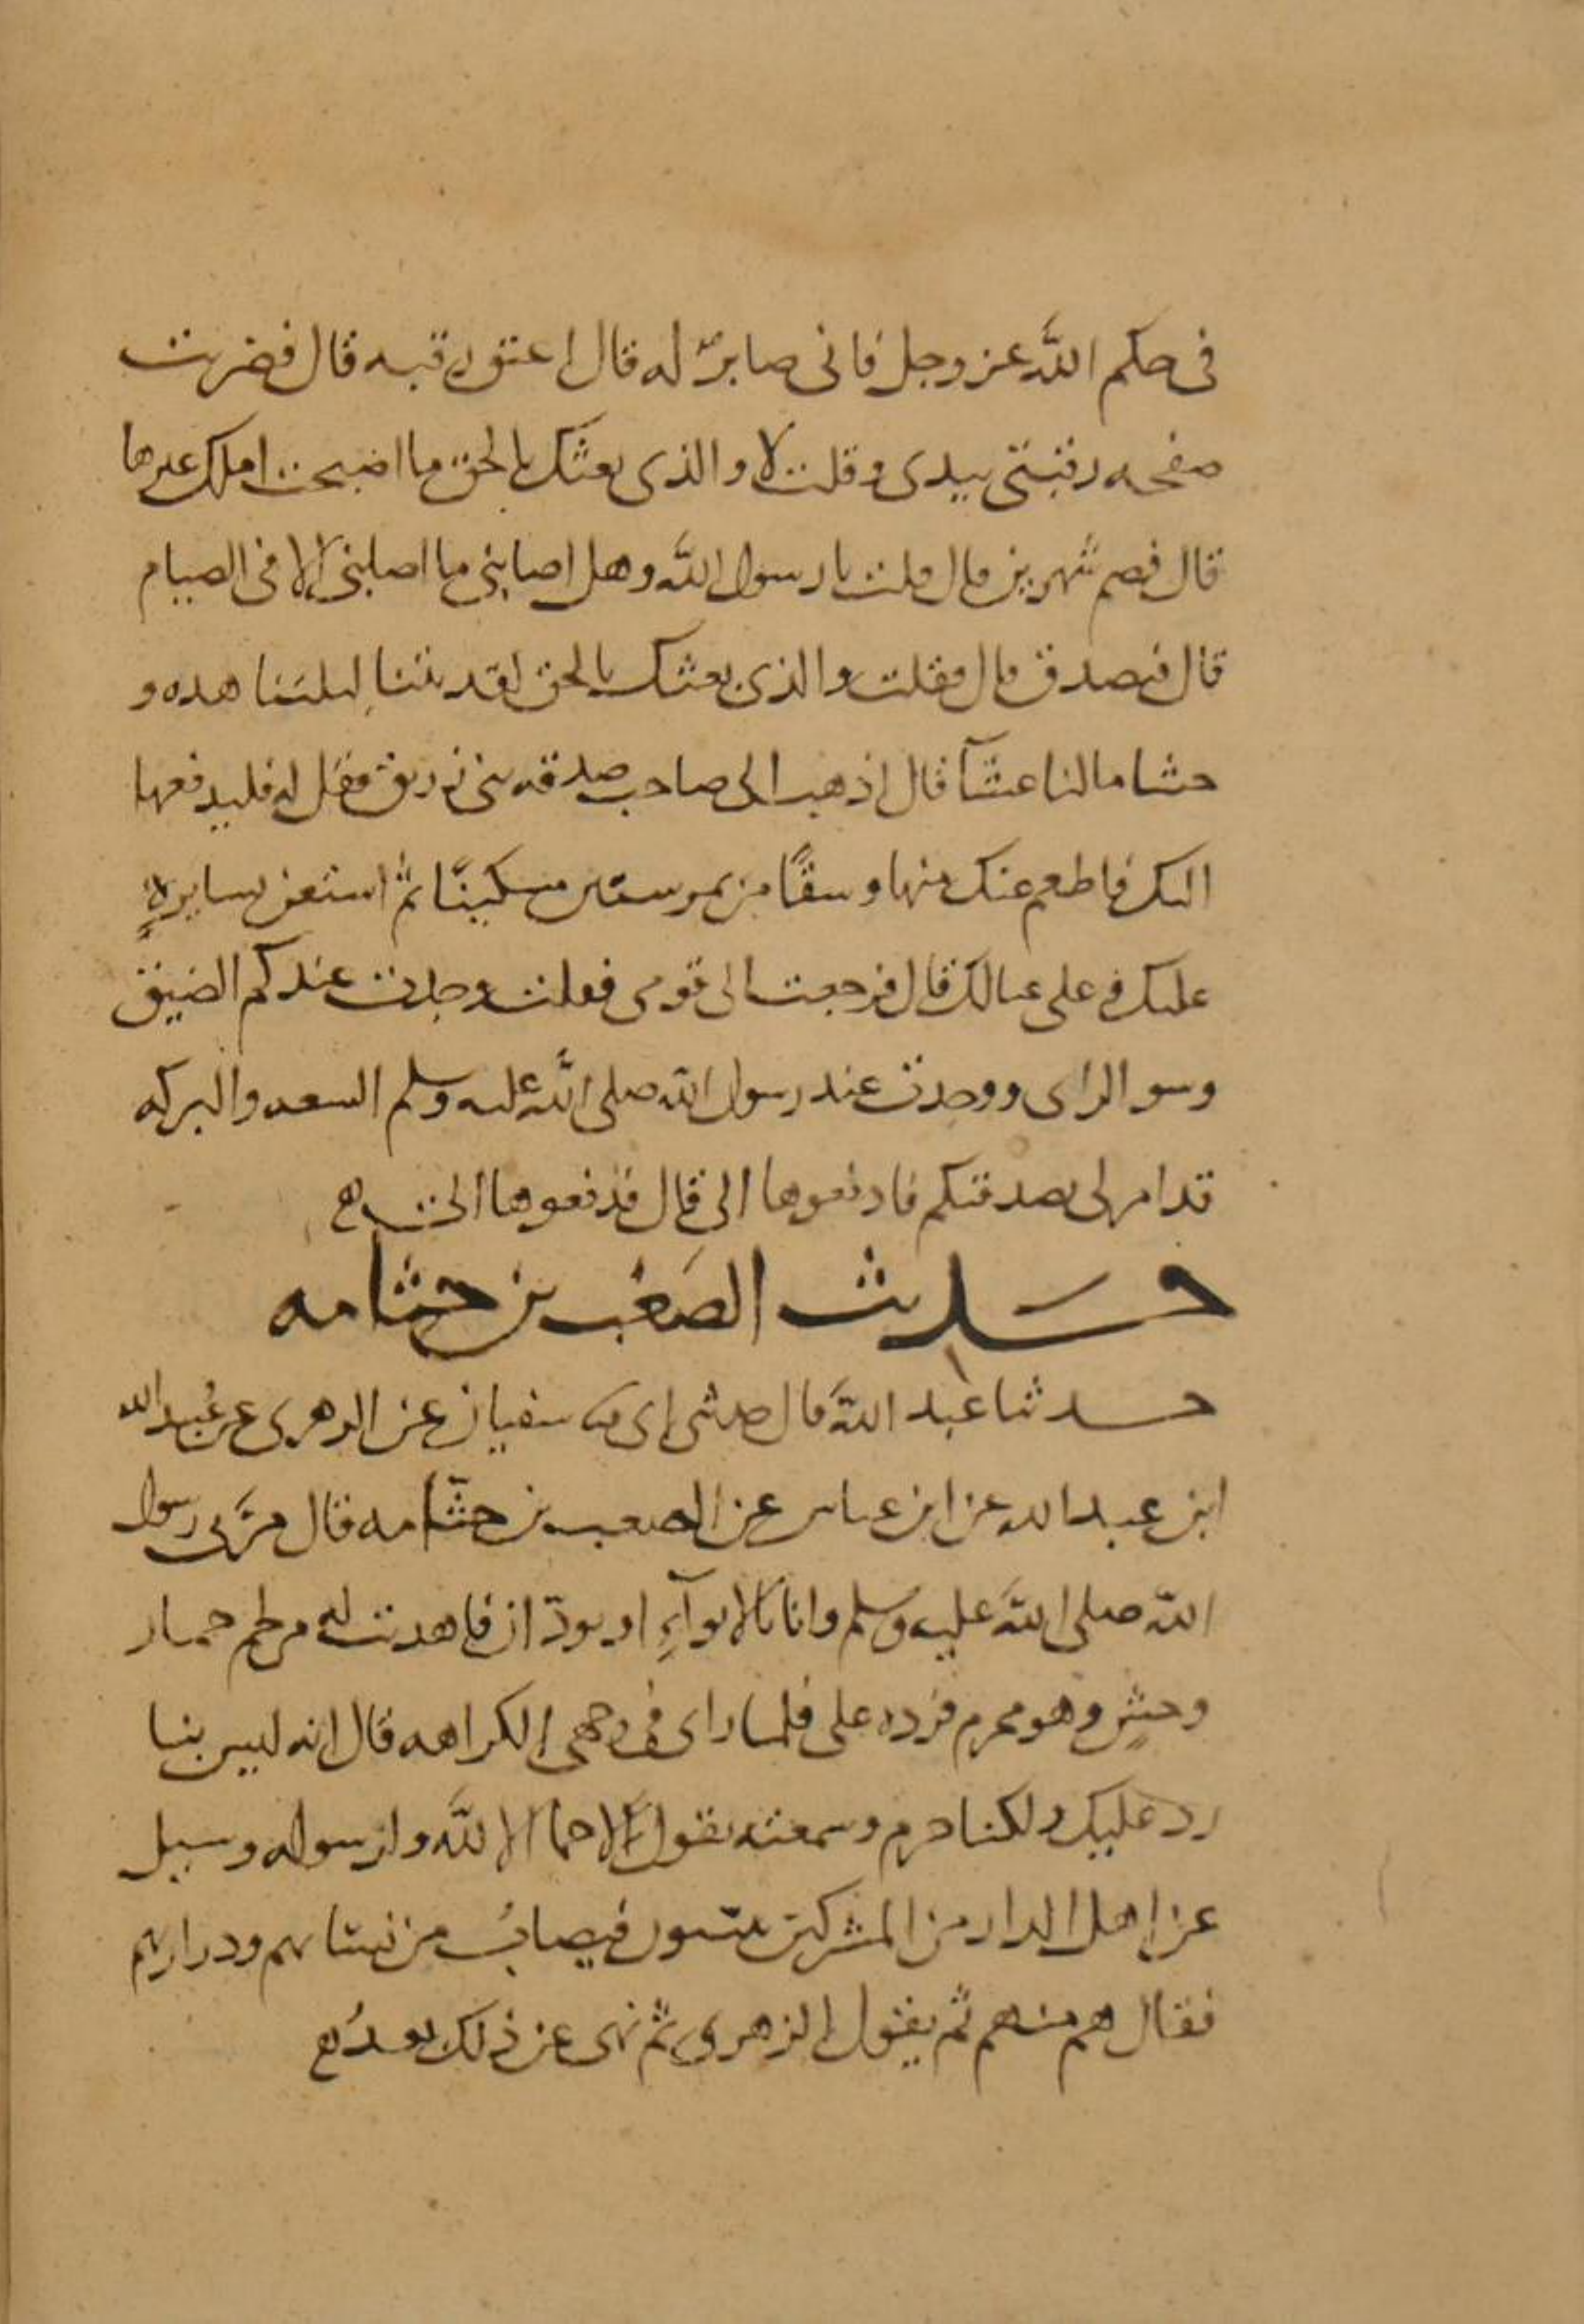 فى حكم الله عز وجل فانى صابرٌ له قال اعتق رقبه قال فضربت
صفحه رقبتى بيدى وقلت لا والذى بعثك بالحق ما اصبحت املك غيرها
قال فصم شهرين قال قلت يا رسول الله وهل اصابنى ما اصابنى الا فى الصيام
قال فتصدق قال فقلت والذى بعثك بالحق لقد بتنا ليلتنا هذه و
حشا مالنا عشآ قال اذهب الى صاحب صدقه بنى زريق فقل له فليدفعها
اليك فاطعم عنك منها وسقًا من تمر ستين مسكينًا ثم استعن بسايره
عليك وعلى عيالك قال فرجعت الى قومى فقلت وجدت عندكم الضيق
وسو الراى ووجدت عند رسول الله صلى الله عليه وسلم السعه والبركه
قد امر لى بصدقتكم فادفعوها الى قال فدفعوها الى
حديث الصعب بن جثامه
حدثنا عبد الله قال حدثنى ابى سفيان عن الزهرى عن عُبيد الله
ابن عبد الله عن ابن عباس عن الصعب بن جثّامه قال مرّ بى رسول
الله صلى الله عليه وسلم وانا بالابوآءِ او بودّان فاهديت له من لحم حمار
وحشٍ وهو محرم فرده على فلما راى فى وجهى الكراهه قال انه ليس بنا
رد عليك ولكنا حرم وسمعته يقول لا حما الا لله ولرسوله وسيل
عن اهل الدار من المشركين يبيتون فيصابُ من نسايهم وذراريهم
فقال هم منهم ثم يقول الزهرى ثم نهى عن ذلك بعدُ